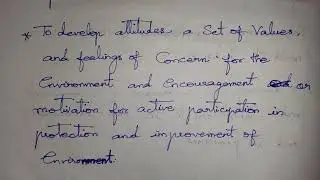 * To develop attitudes, a Set of Values,
and feelings of Concern for the
Environment and Encouragement or
motivation for active participation in
protection and improvement of
Environment.